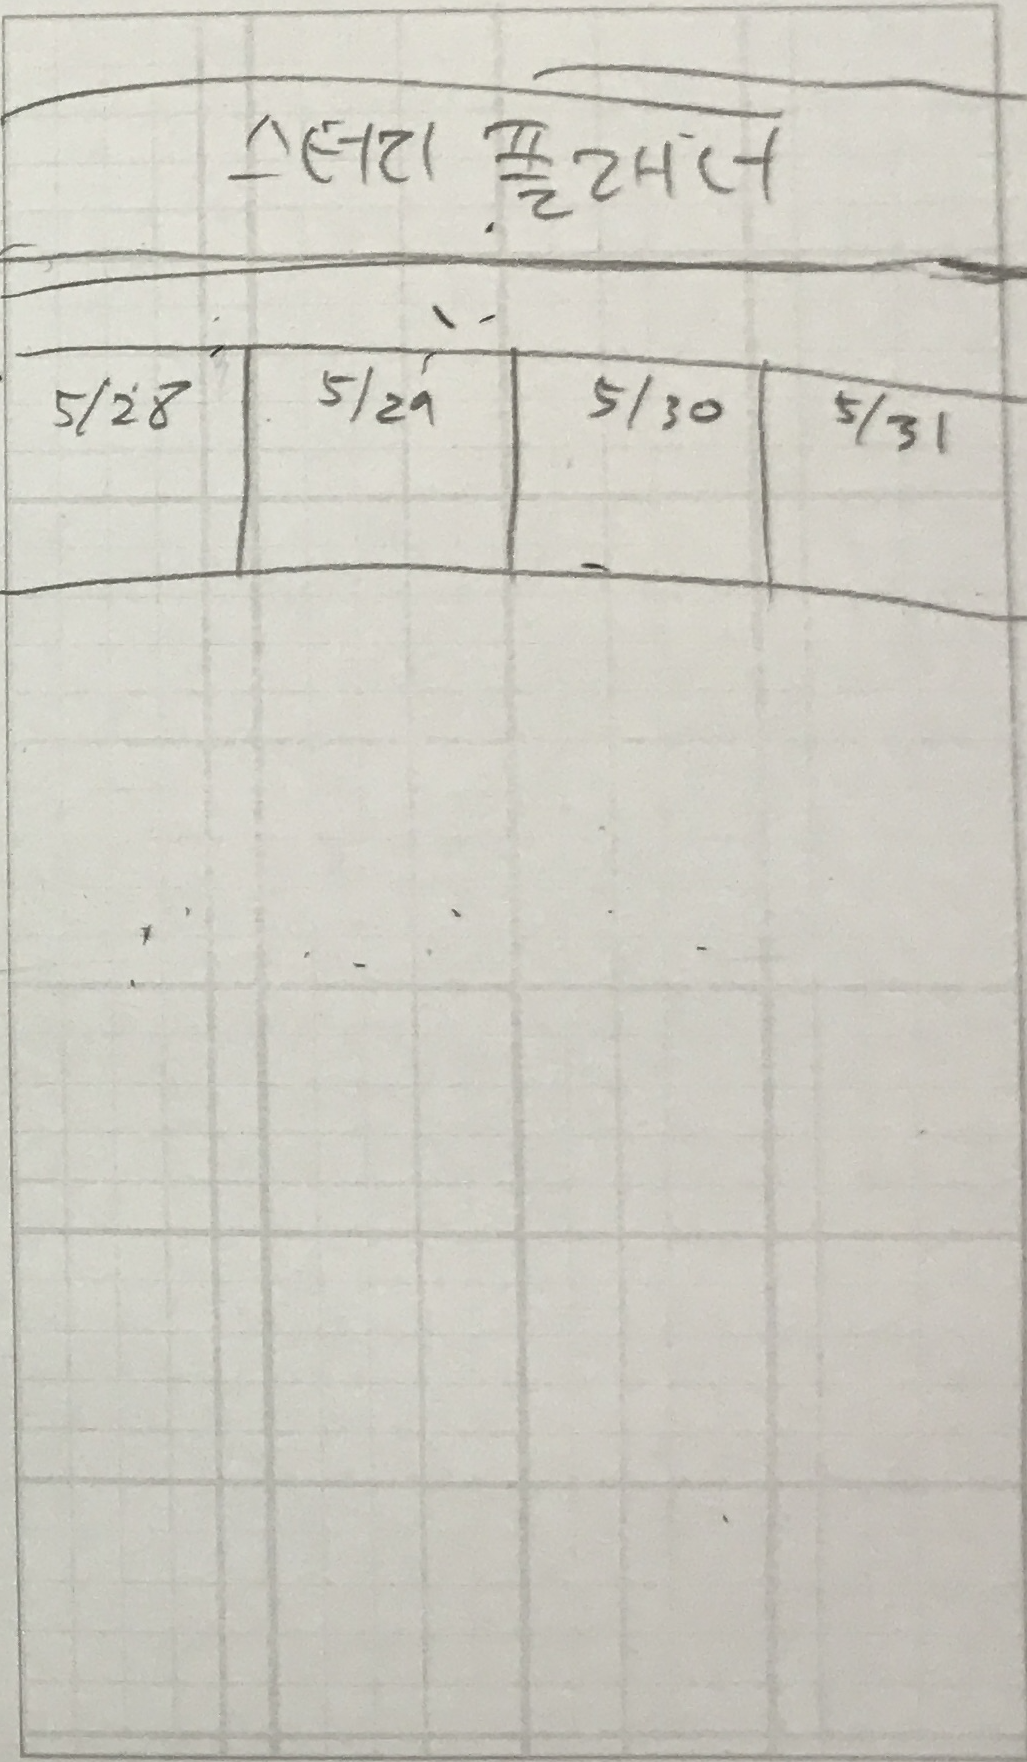 스터리 플래너
5/28 5/29 5/30 5/31